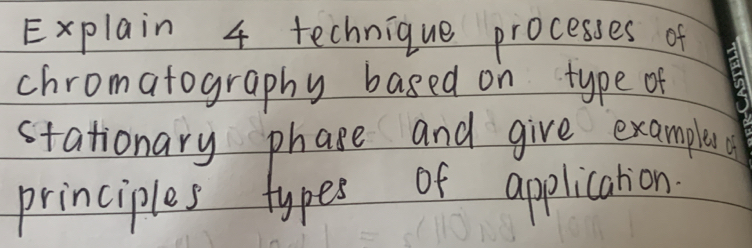 Explain 4 technique processes of
chromatography based on type of
stationary phase and give examples of
principles types of application.
CASTELL